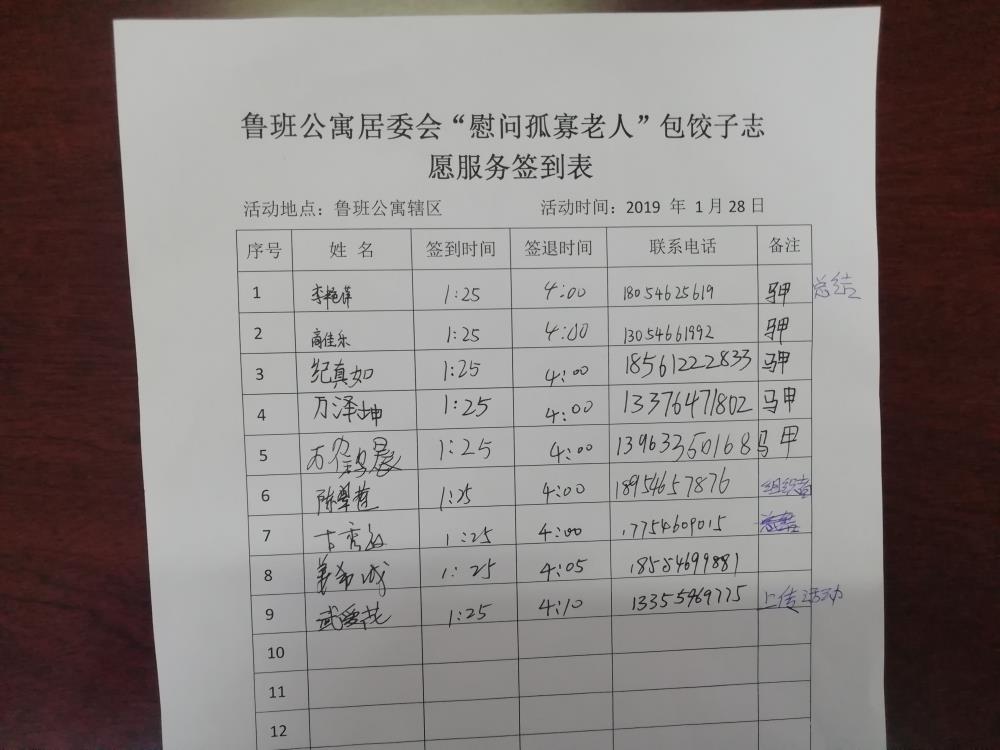 鲁班公寓居委会“慰问孤寡老人”包饺子志
愿服务签到表
活动地点：鲁班公寓辖区 活动时间：2019 年 1月28日
序号 姓 名 签到时间 签退时间 联系电话 备注
1 1:25 4:00 18054625619 马甲 总结
2 高佳乐 1:25 4:00 13054661992 马甲
3 纪真如 1:25 4:00 18561222833 马甲
4 万泽坤 1:25 4:00 13376471802 马甲
5 1:25 4:00 13963350168 马甲
6 1:25 4:00 18954657876 组织者
7 1:25 4:00 17754609015
8 1:25 4:05 18554699881
9 武爱花 1:25 4:10 13355469775 上传活动
10
11
12